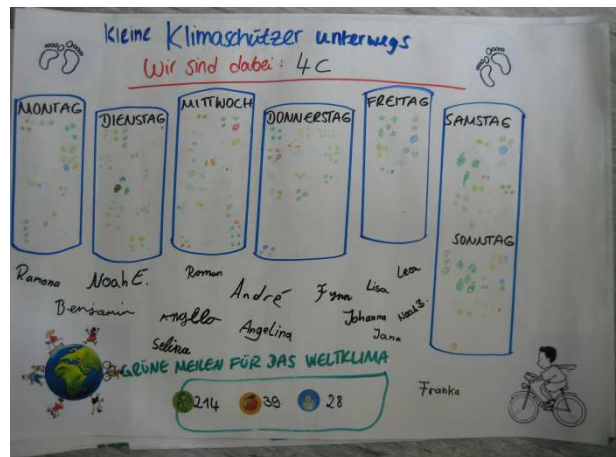 Kleine Klimaschützer unterwegs
Wir sind dabei: 4C
MONTAG
DIENSTAG
MITTWOCH
DONNERSTAG
FREITAG
SAMSTAG
SONNTAG
Ramona
Noah E.
Roman
André
Fynn
Lisa
Lea
Benjamin
Angelina
Johanna
Noah B.
Selina
Jana
GRÜNE MEILEN FÜR DAS WELTKLIMA
214
39
28
Franka